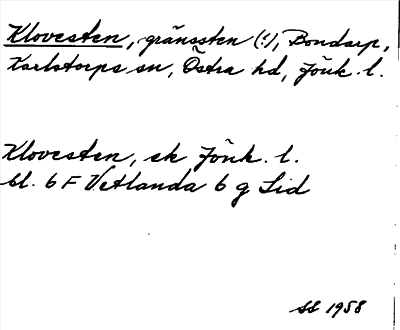 Klovesten, gränssten (!), Bondarp,
Karlstorps sn, Östra hd, Jönk. l.
Klovesten, ek Jönk. l.
bl. 6 F Vetlanda 6 g Lid
SS 1958